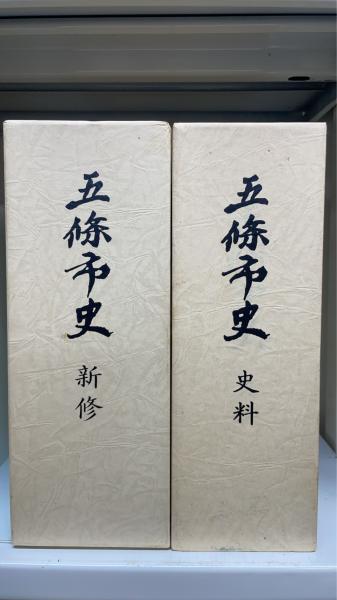 五條市史
新修
五條市史
史料